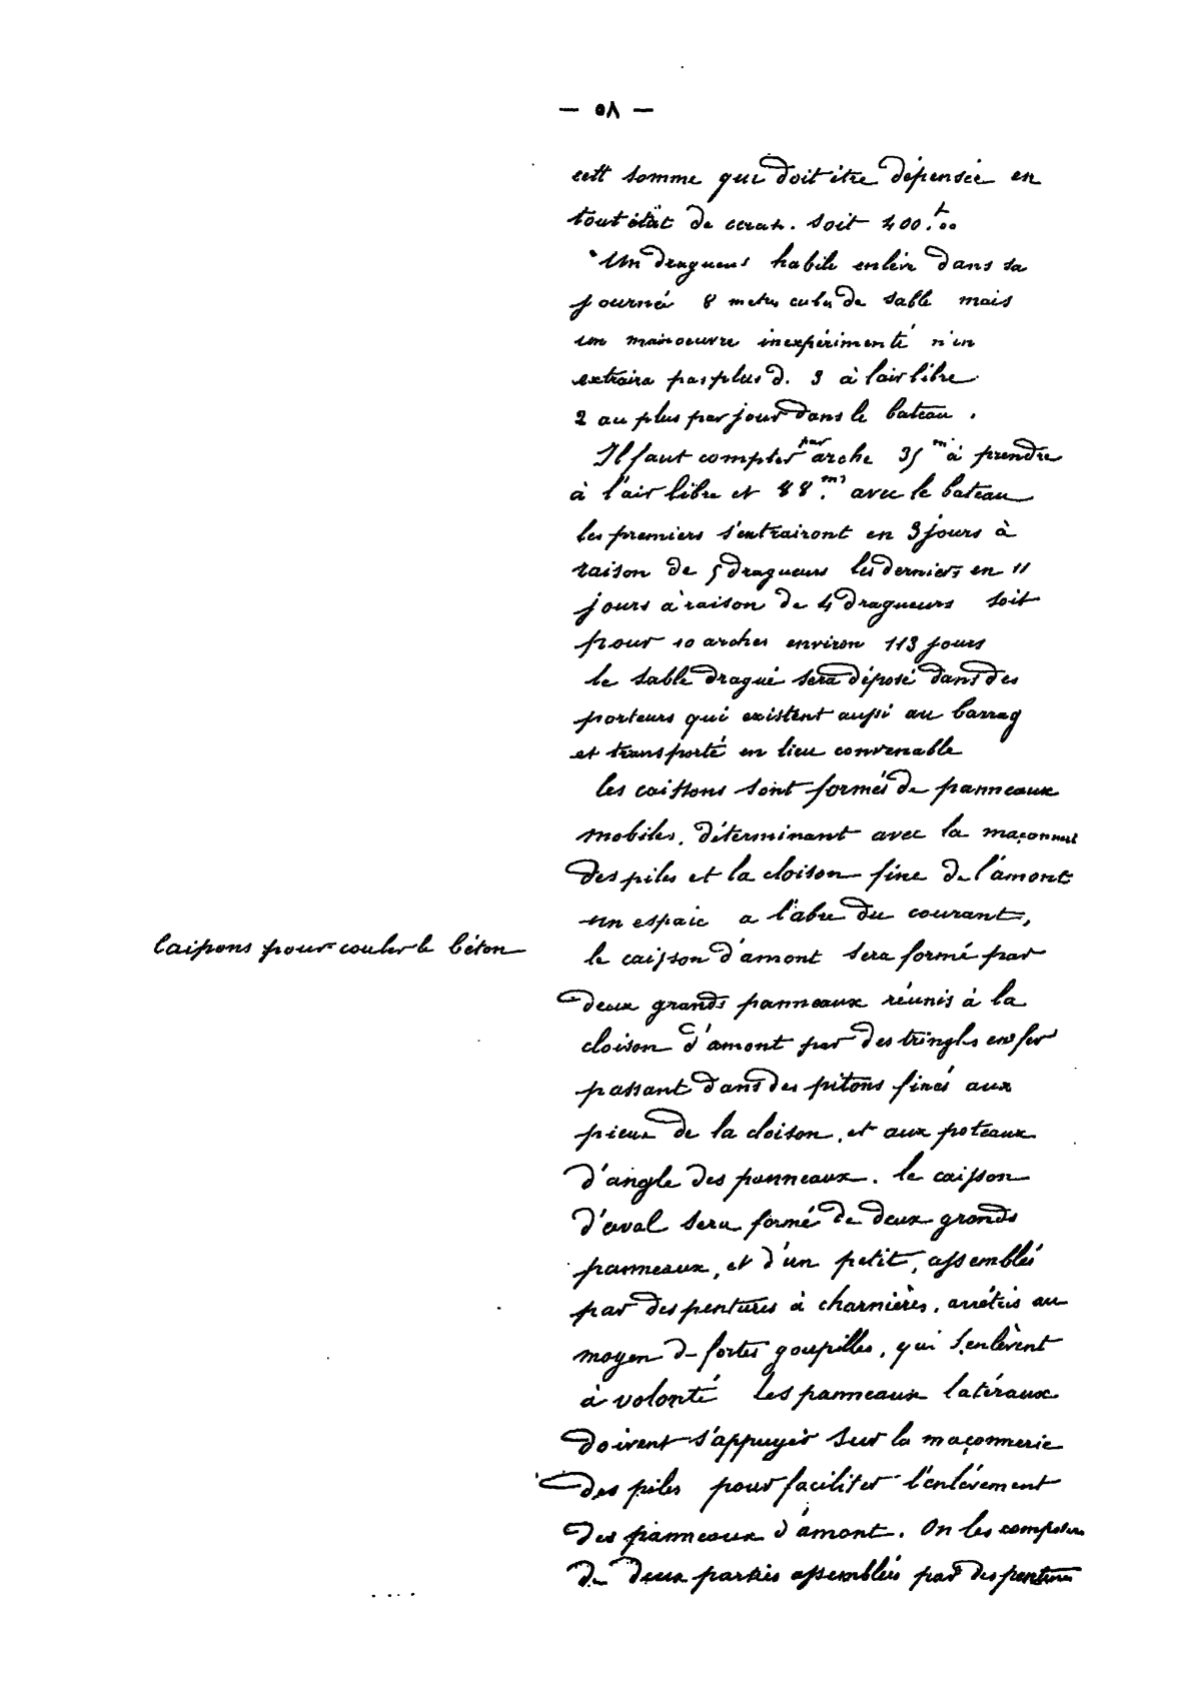 — ٥٨ —
cette somme qui doit être dépensée en
tout état de cause. soit 400.f00
Un dragueur habile enlève dans sa
journée 8 metres cubes de sable mais
un manoeuvre inexpérimenté n'en
extraira pas plus de 3 à l'air libre
2 au plus par jour dans le bateau.
Il faut compter par arche 35 m à prendre
à l'air libre et 88. m3 avec le bateau
les premiers s'extrairont en 3 jours à
raison de 5 dragueurs les derniers en 11
jours à raison de 4 dragueurs soit
pour 10 arches environ 113 jours
le sable dragué sera déposé dans des
porteurs qui existent aussi au barrage
et transporté en lieu convenable
les caissons sont formés de panneaux
mobiles, déterminant avec la maçonnerie
des piles et la cloison fixe de l'amont
un espace a l'abri du courant,
Caissons pour couler le béton
le caisson d'amont sera formé par
deux grands panneaux réunis à la
cloison d'amont par des tringles en fer
passant dans des pitons fixés aux
pieux de la cloison, et aux poteaux
d'angle des panneaux. le caisson
d'aval sera formé de deux grands
panneaux, et d'un petit, assemblés
par des pentures à charnières, arrêtés au
moyen de fortes goupilles, qui s'enlèvent
à volonté les panneaux latéraux
doivent s'appuyer sur la maçonnerie
des piles pour faciliter l'enlèvement
des panneaux d'amont. On les composera
de deux parties assemblées par des pentures